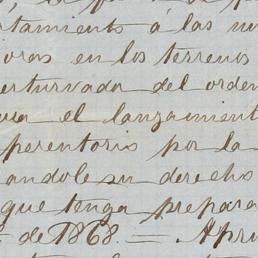 tamiento á las nu
oras, en los terrenos
erturvada del orden
el lanzamient
perentorio por la
andole su derecho
que tenga prepara
de 1868. — Apru